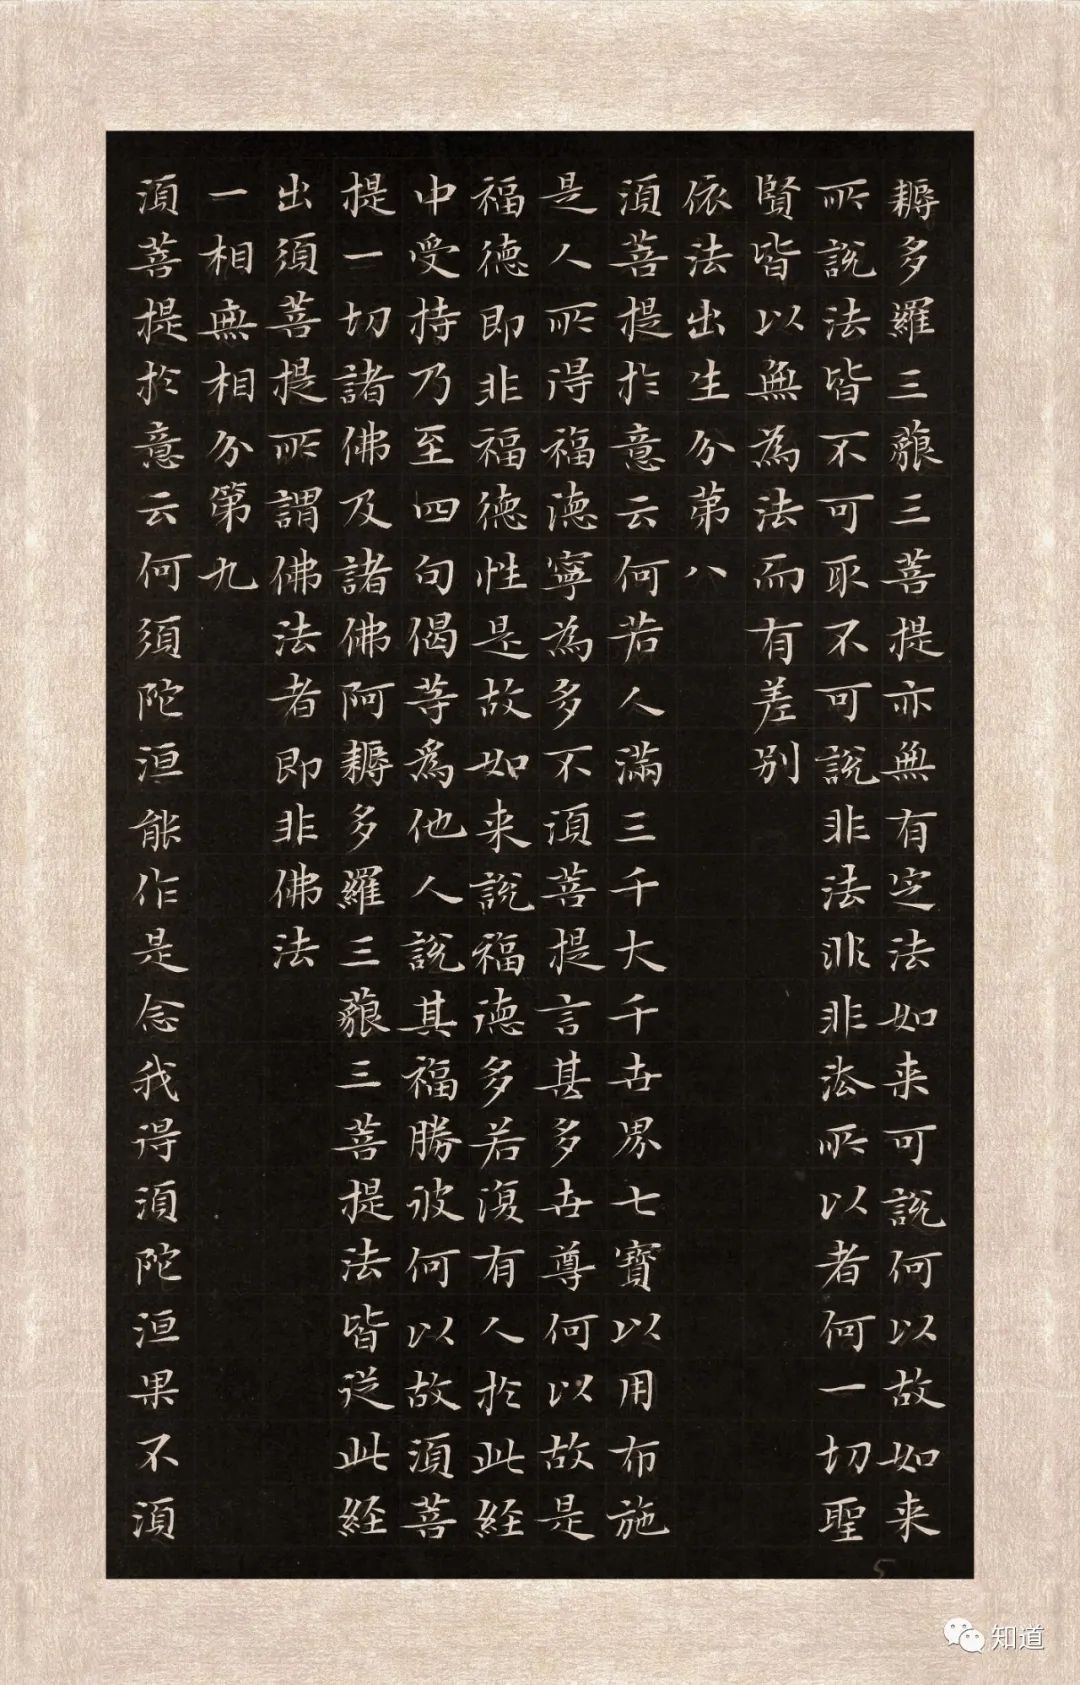 耨多羅三藐三菩提亦無有定法如来可說何以故如来
所說法皆不可取不可說非法非非法所以者何一切聖
賢皆以無為法而有差别
依法出生分第八
湏菩提扵意云何若人滿三千大千世界七寶以用布施
是人所得福徳寧為多不湏菩提言甚多世尊何以故是
福德即非福德性是故如来說福徳多若復有人扵此経
中受持乃至四句偈等爲他人說其福勝彼何以故湏菩
提一切諸佛及諸佛阿耨多羅三藐三菩提法皆従此経
出須菩提所謂佛法者即非佛法
一相無相分第九
湏菩提扵意云何須陀洹能作是念我得湏陀洹果不湏
5
知道